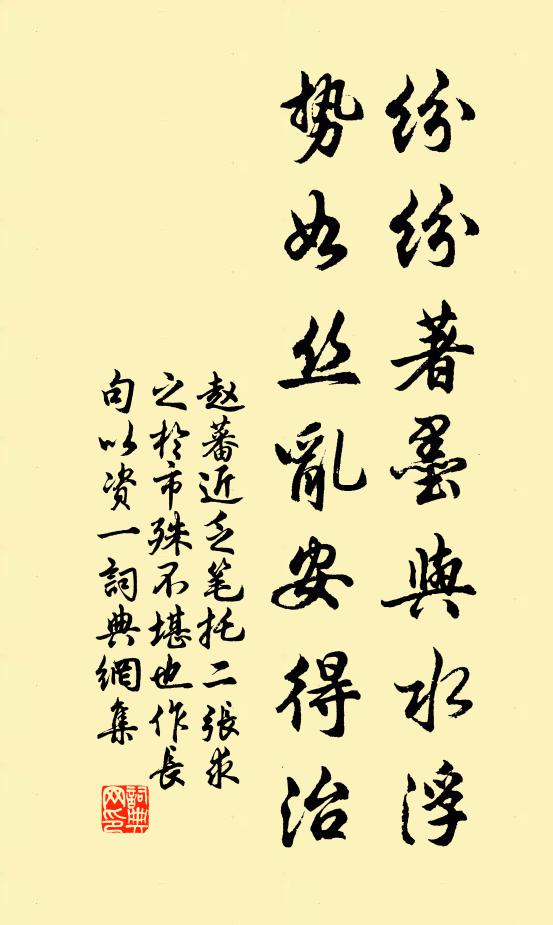 纷纷著墨与水浮
势如丝乱安得治
赵蕃近乏笔托二張求
之於市殊不堪也作長
句以资一詞典網集
詞典网印